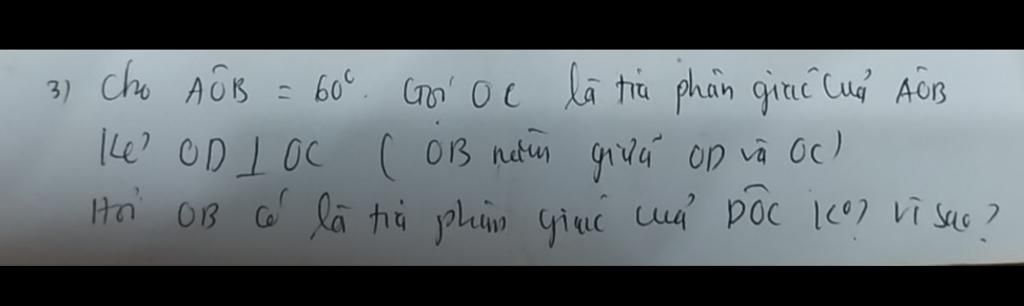 3) Cho AÔB = 60°. Gọi OC là tia phân giác của AÔB
Kẻ OD ⊥ OC ( OB nằm giữa OD và OC)
Hỏi OB có là tia phân giác của DÔC ko? Vì sao?